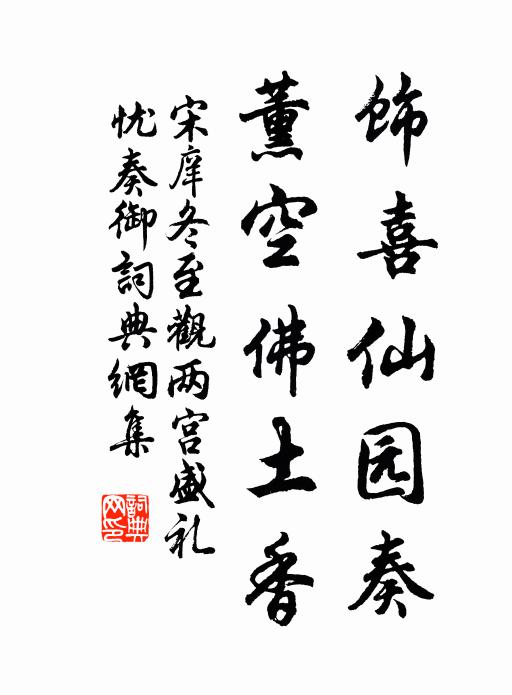 饰喜仙园奏
薰空佛土香
宋庠冬至觀两宫盛礼
忱奏御詞典網集
詞典网印